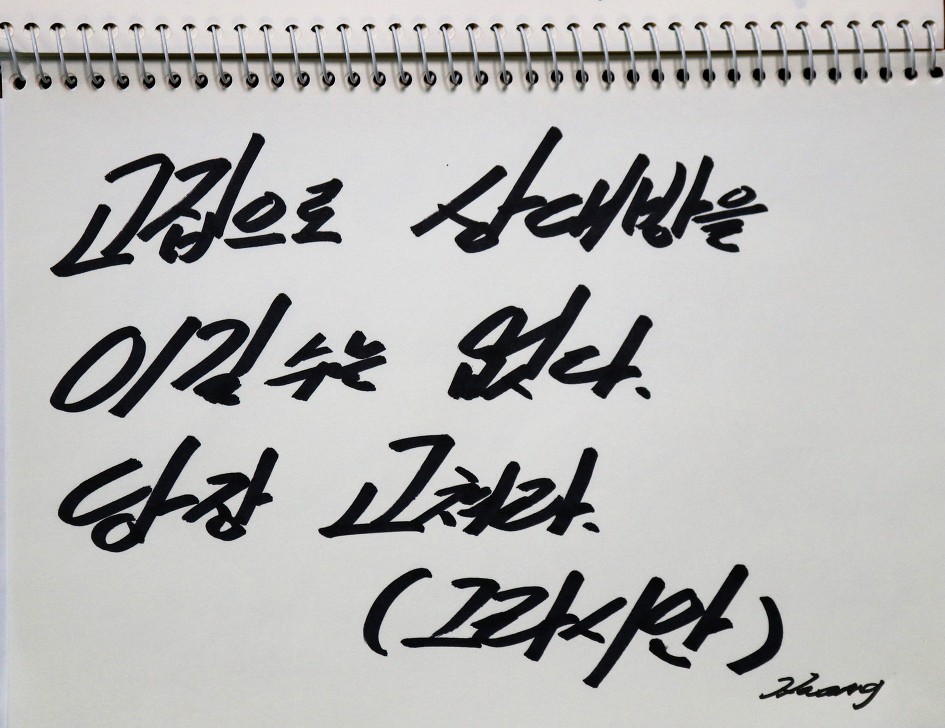 고집으로 상대방을
이길 수는 없다.
당장 고쳐라.
(그라시안)
Hwang